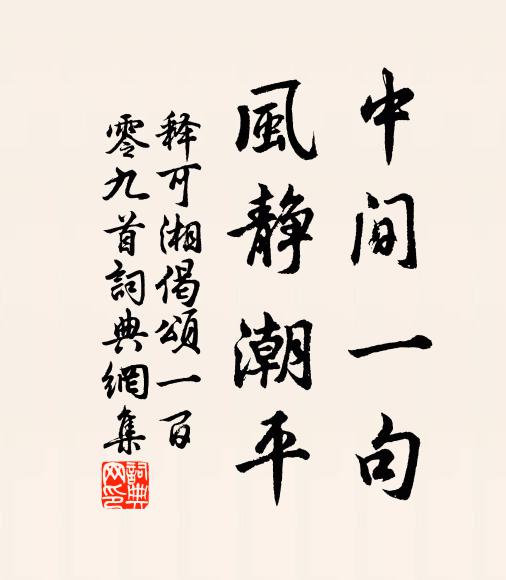 中間一句
風静潮平
释可湘偈頌一百
零九首詞典網集
詞典网印